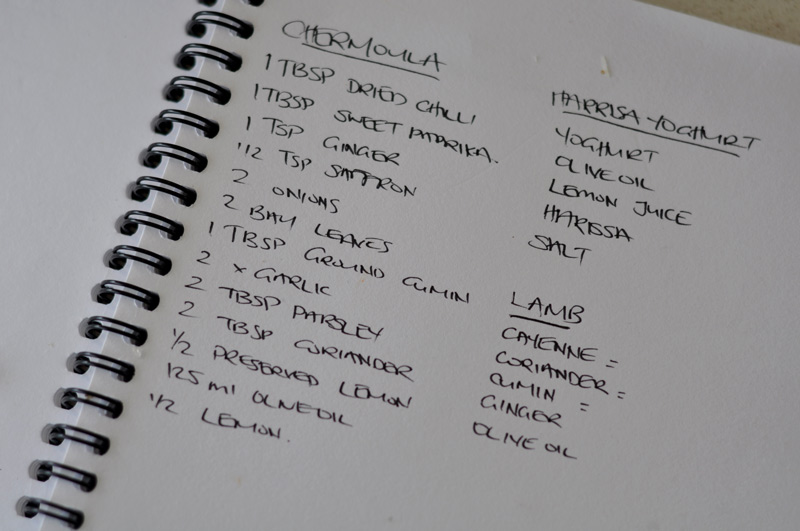 CHERMOULA
1 TBSP DRIED CHILLI
1 TBSP SWEET PAPRIKA.
1 TSP GINGER
1/2 TSP SAFFRON
2 ONIONS
2 BAY LEAVES
1 TBSP GROUND CUMIN
2 x GARLIC
2 TBSP PARSLEY
2 TBSP CORIANDER
1/2 PRESERVED LEMON
125 ml OLIVE OIL
1/2 LEMON.
HARRISA YOGHURT
YOGHURT
OLIVE OIL
LEMON JUICE
HARISSA
SALT
LAMB
CAYENNE =
CORIANDER =
CUMIN =
GINGER
OLIVE OIL